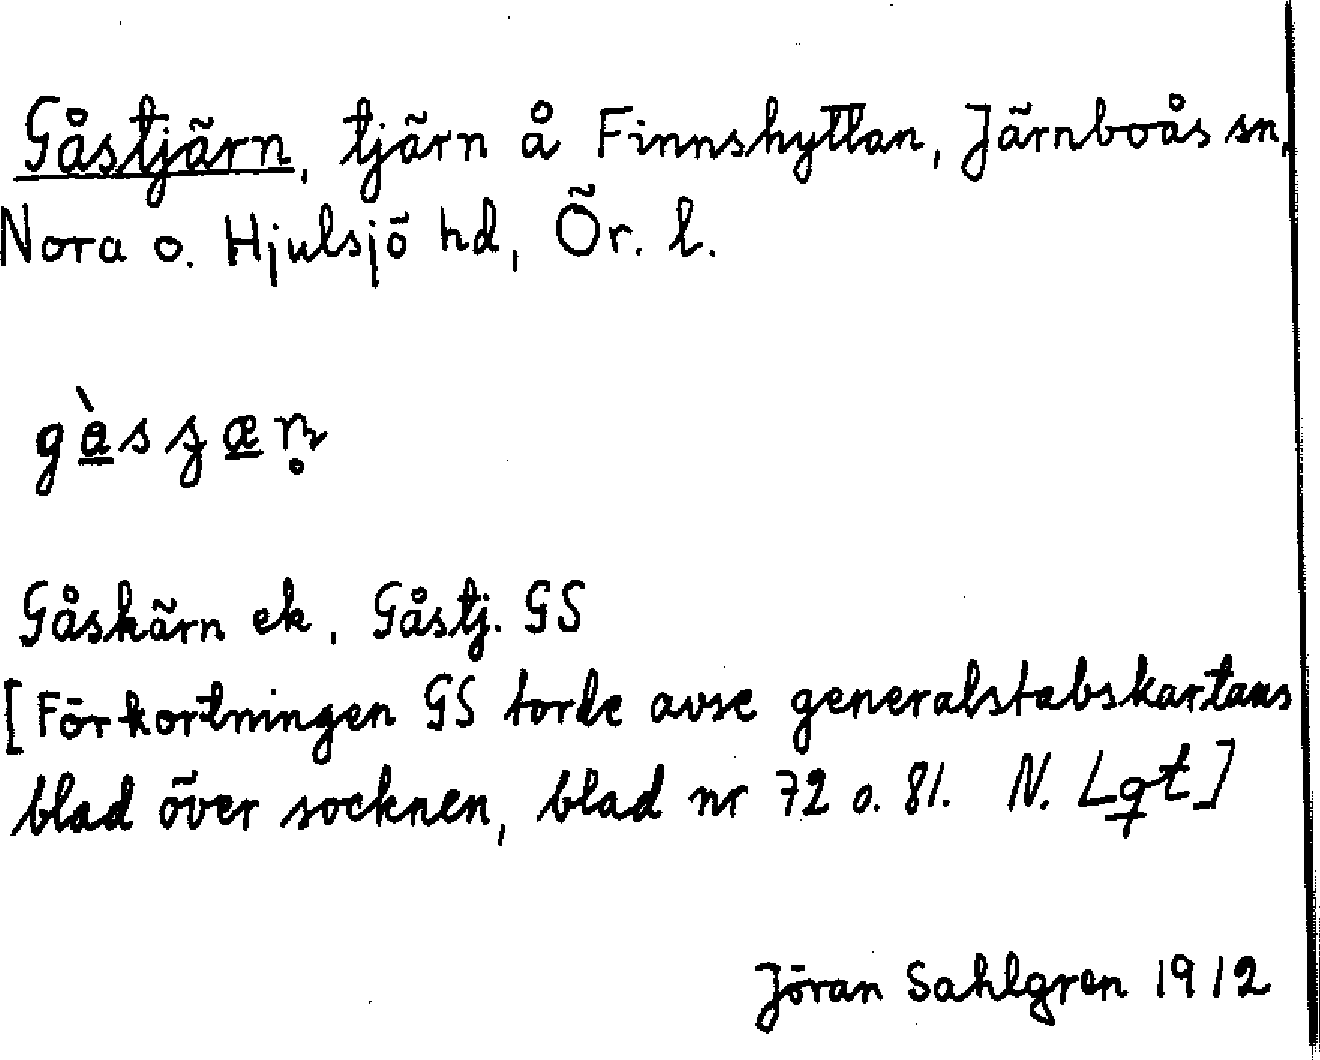 Gåstjärn, tjärn å Finnshyttan, Järnboås sn,
Nora o. Hjulsjö hd, Ör. l.
Gåskärn ek, Gåstj. GS
[Förkortningen GS torde avse generalstabskartans
blad över socknen, blad nr 72 o. 81. N. Lgt]
Jöran Sahlgren 1912